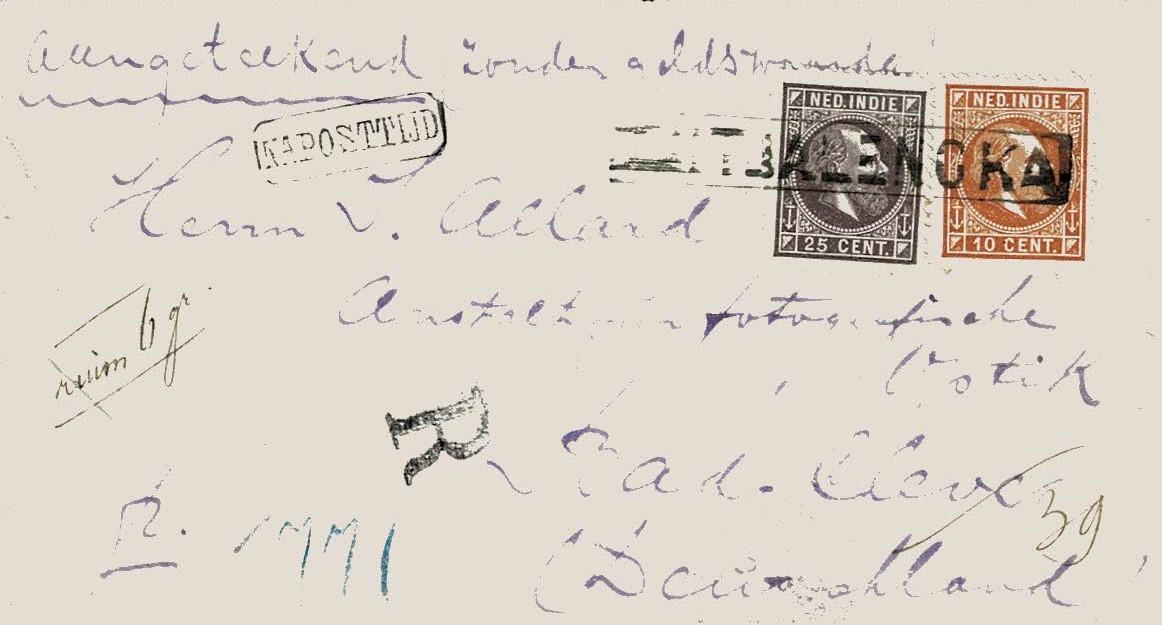 Aangeteekend zonder geldswaarde
NAPOSTTIJD
NED. INDIE
25 CENT.
NED. INDIE
10 CENT.
TJITJALENGKA
Herrn T. Allard
Anstalt fotografische
Optik
ruim 6 gr.
R
Bad. Cleve
39
R. 1771
(Deutschland)